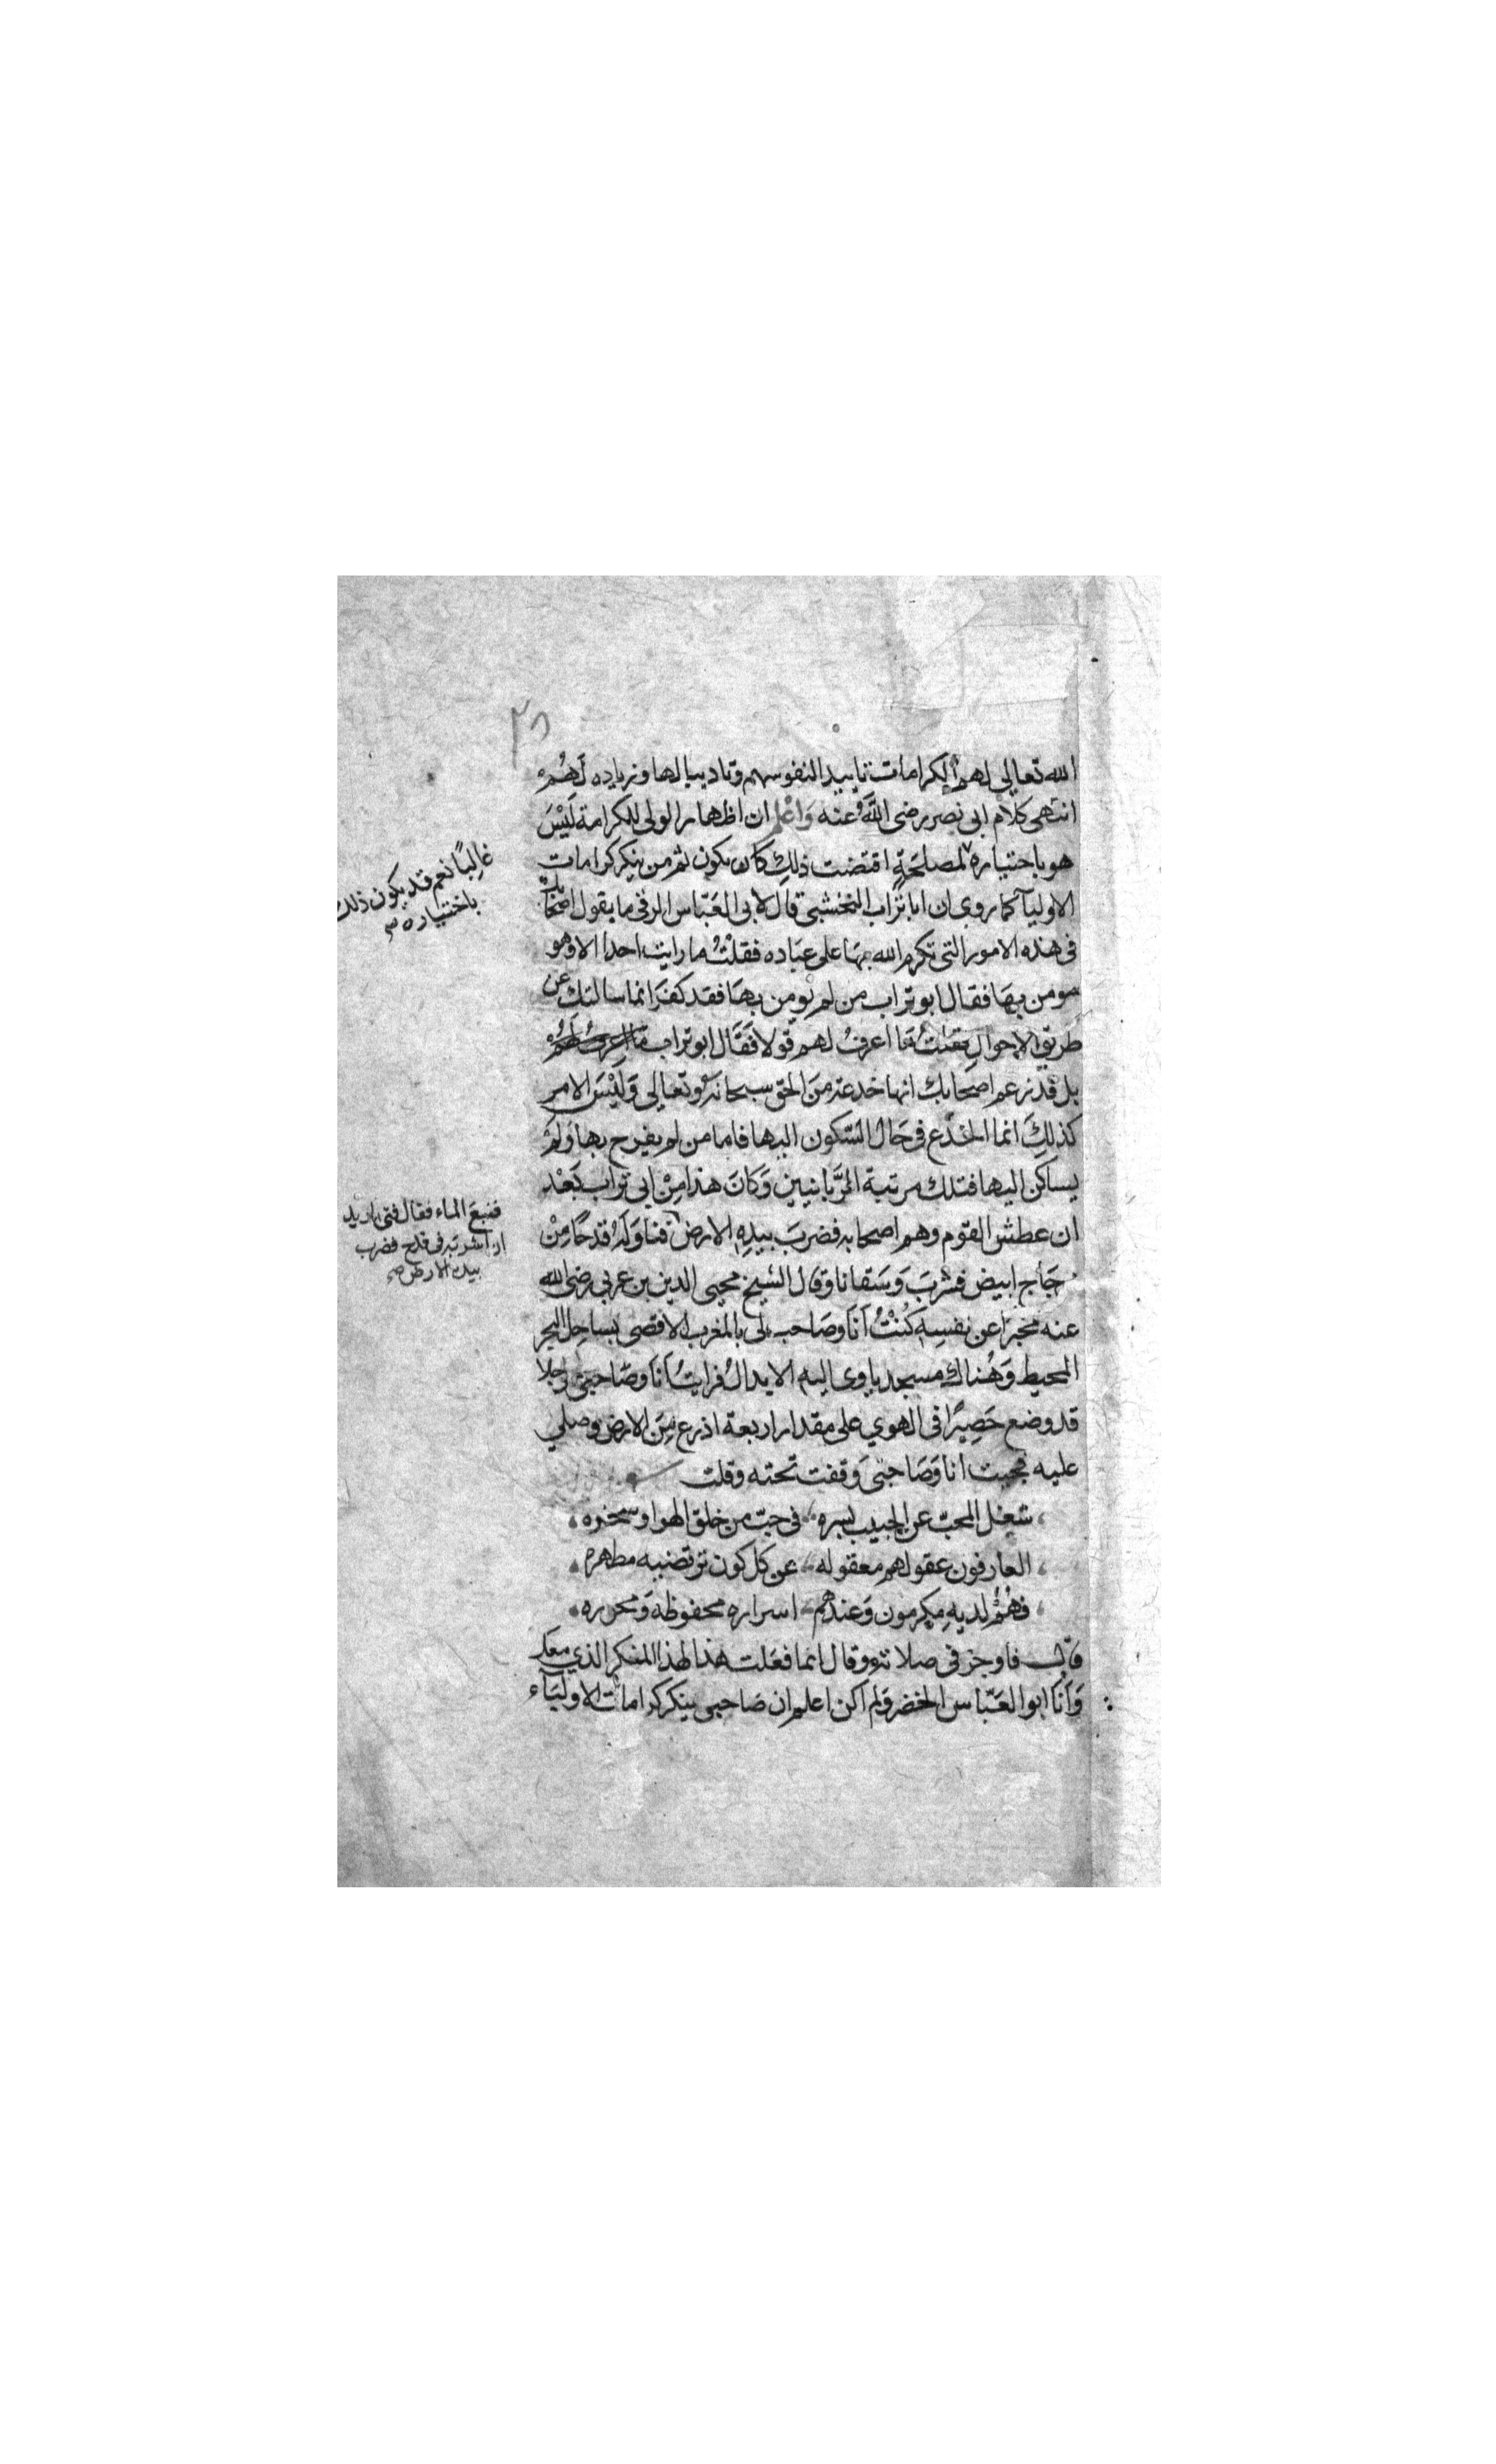 ٣٨
الله تعالى لهم الكرامات تاييدا لنفوسهم وتاديبا لها وزياده لَهُم
انتهى كلام ابى نصر رضى اللَّه عنه وَاعْلم ان اظهار الولى للكرامة لَيْسَ
هو باختياره لمصلحَةٍ اقتضت ذلك كان يكون ثم من ينكر كرامات
الاوليآ كما روى ان ابا تراب النخشبى قال لابى العَبّاس الرقى ما يقول اصحابك
فى هذه الامور التى تكرم الله بها على عبَاده فقلْتُ ما رايت احدا الا وهو
مومن بِهَا فقال ابو تراب من لم يومن بهَا فقد كفرَ انما سالتك عن
طريق الاحوال فقلتُ مَا اعرفُ لهم قولا فَقَال ابو تراب
بل قد زعم اصحابك انها خدعة منَ الحق سبحانه وتعالى وَلَيْسَ الامر
كذلِكَ انما الخدع فى حَال السّكون اليها فاما من لم يفرح بها وَلَمْ
يساكن اليها فتلك مرتبة الرَّبانيين وَكانَ هذا مِنْ ابى تراب بَعْد
ان عطش القوم وهم اصحابه فضربَ بيدِهِ الارض فناوَلَهُ قدحًا مِنْ
زجَاج ابيض فشربَ وَسَقانا وَقال الشيخ محيى الدين بن عربي رضى الله
عنه مخبرًا عن نفسِهِ كُنْتُ اَنَا وصَاحب لى بالمغرب الاقصى بساحِل البحر
المحيط وَهُناك مسجد ياوى اليه الابدالُ فرايتُ اَنَا وصَاحبى رجلا
قد وضع حَصِيرًا فى الهوي على مقدار اربعة اذرع مِنَ الارض وصلي
عليه فجيت انا وَصَاحبىَ وَقفت تحته وقلت
شغل المحبّ عن الحبيب بسره ، فى حبّ من خلق الهوا وسخره
العارفون عقولهم معقوله ، عن كل كون ترتضيه مطهره
فهُمُ لديهِ مكرمون وَعندهم ، اسراره محفوظة وَمحرره
قال فاوجز فى صلاته وقال انما فعَلت هذا لهذا المنكر الذى معك
وَاَنَا ابو العَبّاس الخضر ولم اكن اعلم ان صَاحبى ينكر كرامات الاوليَآء
غالبًا نعم قد يكون ذلك
باختياره صح
فنبعَ الماء فقال فتى اريد
ان اشربه فى قدح فضرب
بيده الارض صح